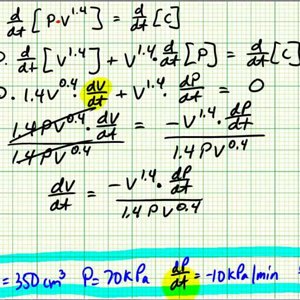 d/dt [P·V^1.4] = d/dt [C]
P· d/dt [V^1.4] + V^1.4 · d/dt [P] = d/dt [C]
P· 1.4V^0.4 · dV/dt + V^1.4 · dP/dt = 0
1.4PV^0.4 · dV/dt / 1.4PV^0.4 = -V^1.4 · dP/dt / 1.4PV^0.4
dV/dt = -V^1.4 · dP/dt / 1.4PV^0.4
= 350 cm^3 P = 70 kPa dP/dt = -10 kPa/min